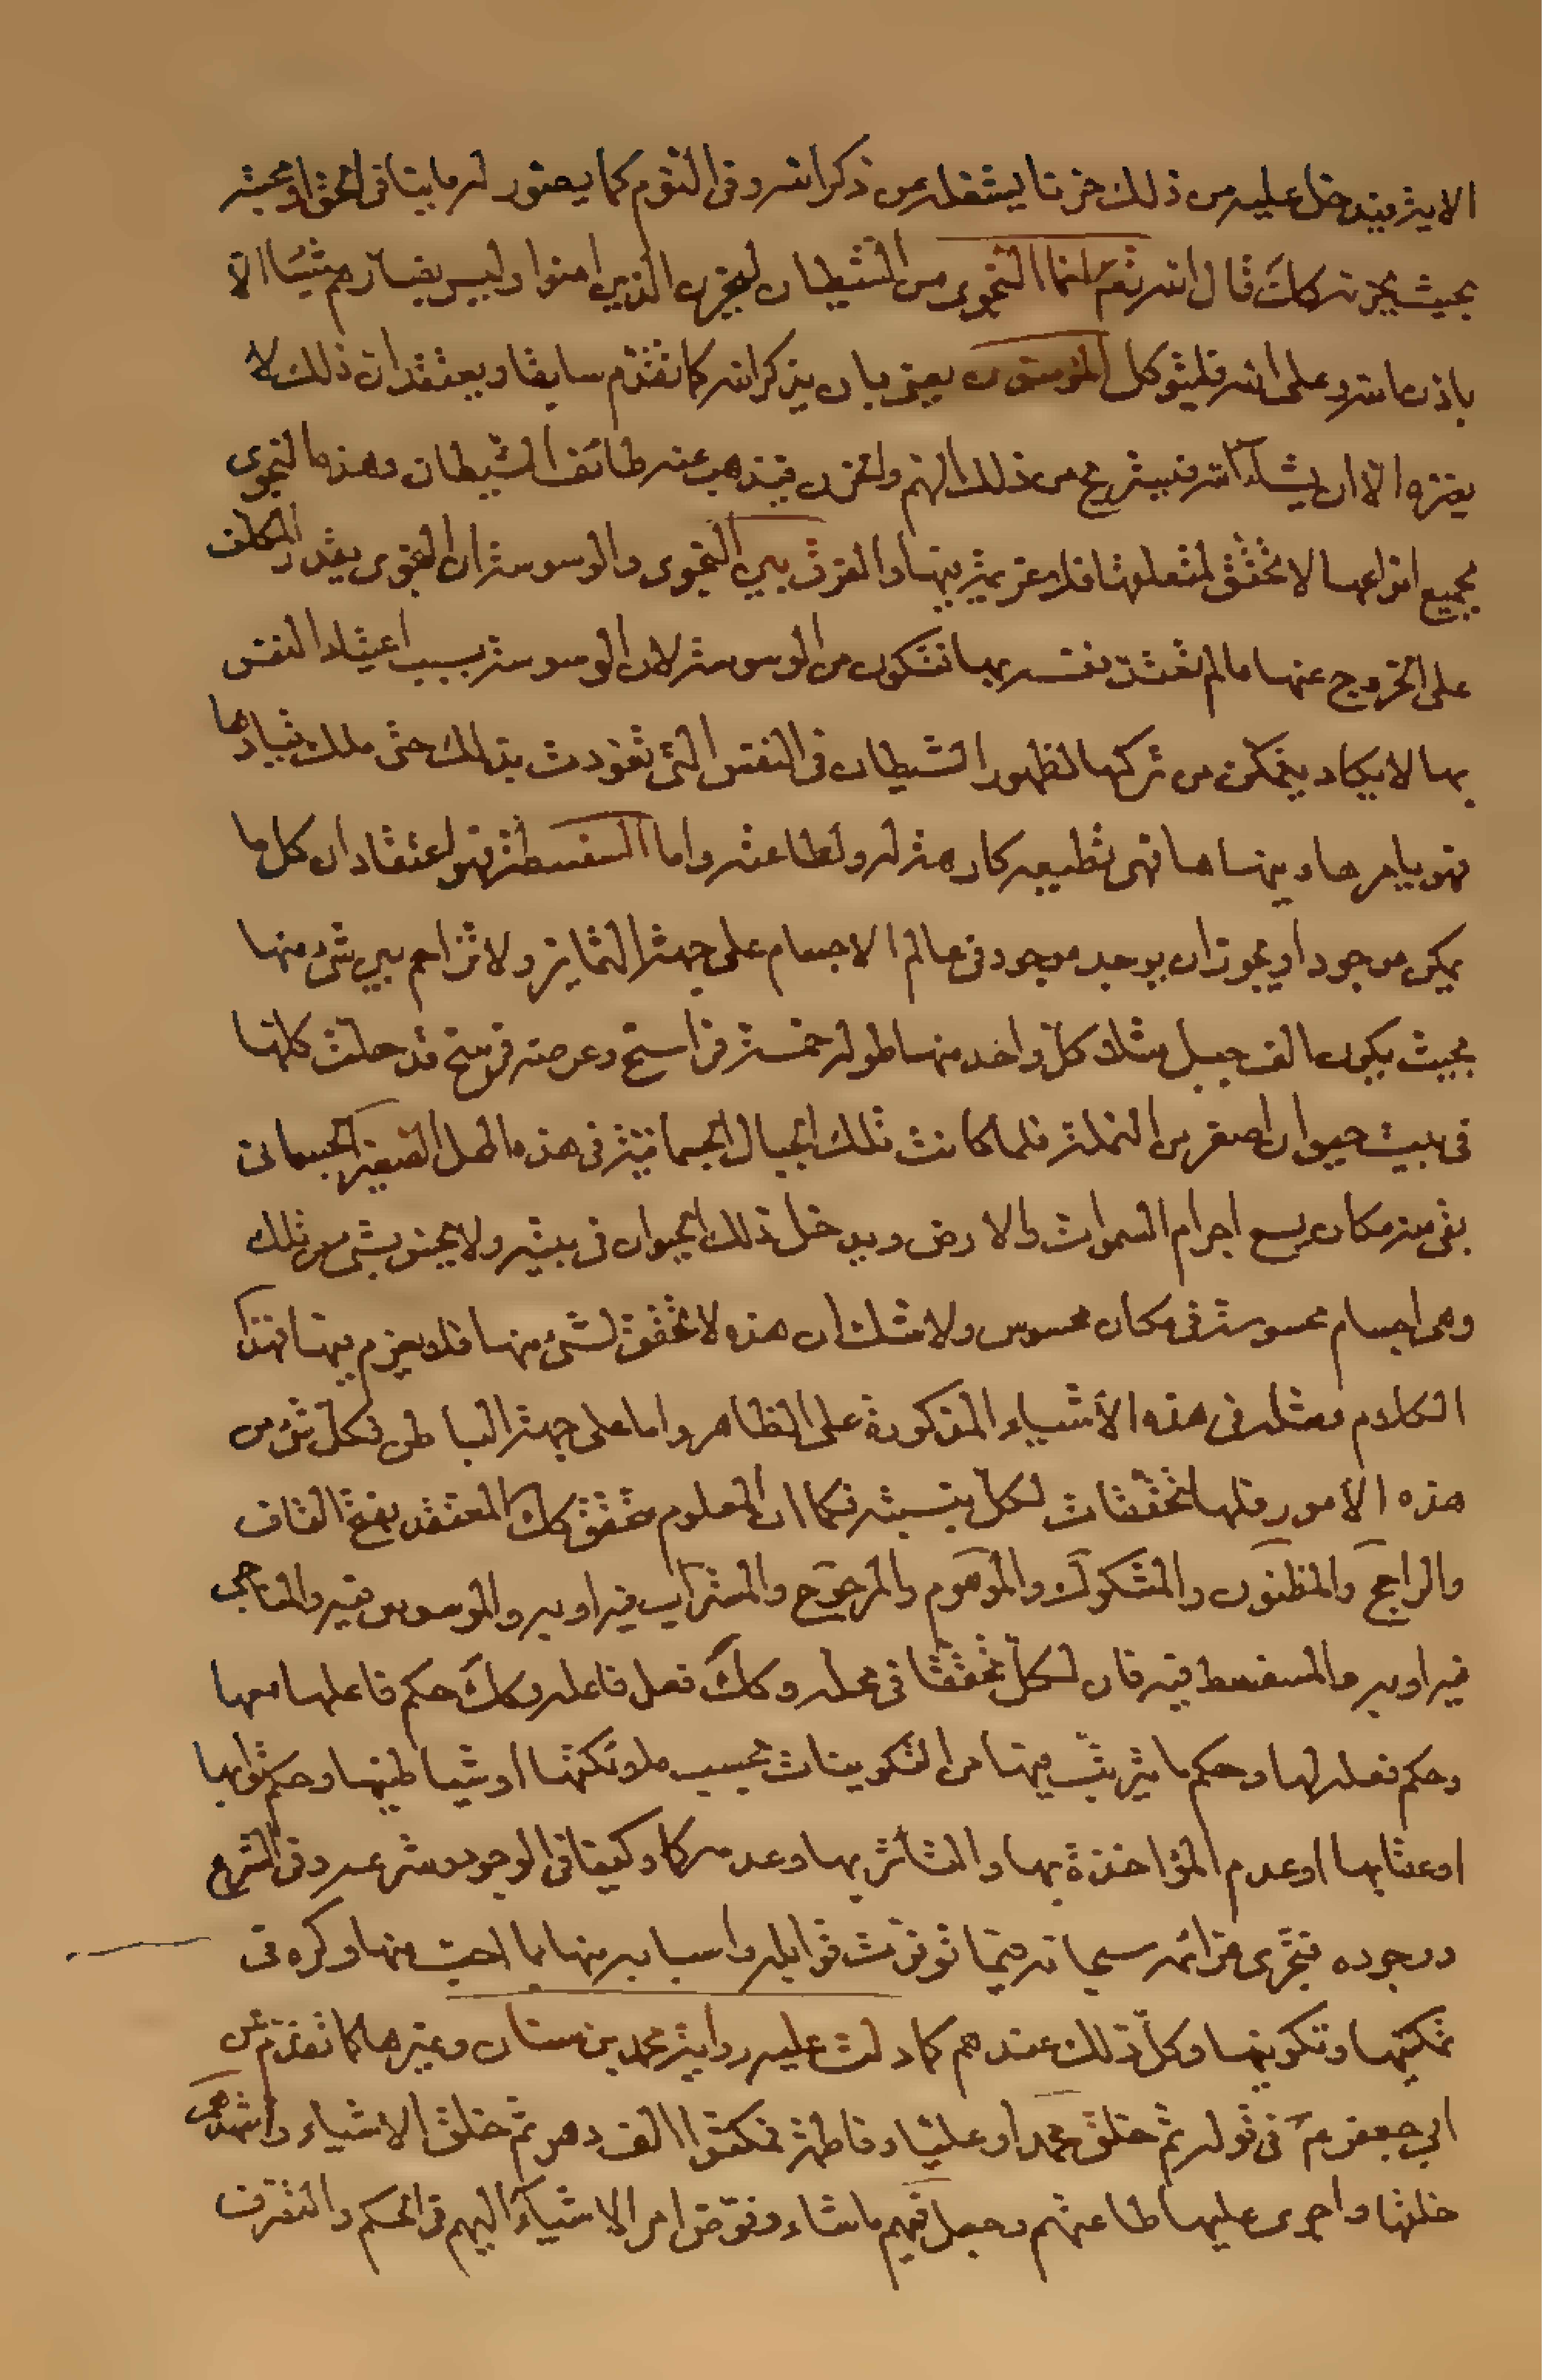 الاذية فيدخل عليه من ذلك حزنا يشغله عن ذكر الله وفي النوم كما يصور له ما ينافي الحق او محبته
بحيث يحزنه كك قال الله تعم انما النجوى من الشيطان ليحزن الذين امنوا وليس بضارهم شيئا الا
باذن الله وعلى الله فليتوكل المؤمنون يعني بان يذكر الله كما تقدم سابقا ويعتقد ان ذلك لا
يضره الا ان يشاء الله فيستريح من ذلك الهم والحزن فيذهب عنه طائف الشيطان وهذه النجوى
بجميع انواعها لا تحقق لمتعلقها فلا عزيمة بها والفرق بين النجوى والوسوسة ان النجوى يقدر المكلف
على الخروج عنها ما لم تعتد نفسه بها فتكون من الوسوسة لان الوسوسة بسبب اعتياد النفس
بها لا يكاد يتمكن من تركها لظهور الشيطان في النفس التي تعودت بذلك حتى ملك قيادها
فهو يامرها وينهاها فهي تطيعه كارهة له ولطاعته واما السفسطة فهو اعتقاد ان كل ما
يمكن موجود او يجوز ان يوجد موجود في عالم الاجسام على جهة التمايز ولا تزاحم بين شيء منها
بحيث يكون الف جبل مثلا كل واحد منها طوله خمسة فراسخ وعرضه فرسخ قد حلت كلها
في بيت حيوان اصغر من النملة فلما كانت تلك الجبال الجسمانية في هذه المحل الصغير الجسماني
بقي منه مكان يسع اجرام السموات والارض ويدخل ذلك الحيوان في بيته ولا يحس بشيء من تلك
وهي اجسام محسوسة في مكان محسوس ولا شك ان هذه لا تحقق لشيء منها فلا يعزم بها فهذا
الكلام ومثله في هذه الأشياء المذكورة على الظاهر واما على جهة الباطن فكل شيء من
هذه الأمور فلها تحققات لكل بنسبته فكما ان المعلوم متحقق كك المعتقد بفتح القاف
والراجح والمظنون والمشكوك والموهوم والمرجوح والمستراب فيه او به والموسوس فيه والمناجى
فيه او به والمسفسط فيه فان لكل تحققا في محله وكك فعل فاعله وكك حكم فاعلها معها
وحكم فعله لها وحكم ما يترتب فيها من التكوينات بحسب ملائكتها او شياطينها وحكم ثوابها
او عقابها او عدم المؤاخذة بها والتأثر بها وعدمه كما وكيفا في الوجود وشرعه وفي الشرع
ووجوده فتجري عزائمه سبحانه فيما توفرت قوابله واسبابه منها بما احب منها وكره في
تمكينها وتكوينها وكل ذلك عندهم كما دلت عليه رواية محمد بن سنان وغيرها كما تقدم عن
ابي جعفر ع في قوله ثم خلق محمدا وعليا وفاطمة فمكثوا الف دهر ثم خلق الاشياء واشهدهم
خلقها واجرى عليها طاعتهم وجعل فيهم ما شاء وفوض امر الاشياء اليهم في الحكم والتصرف